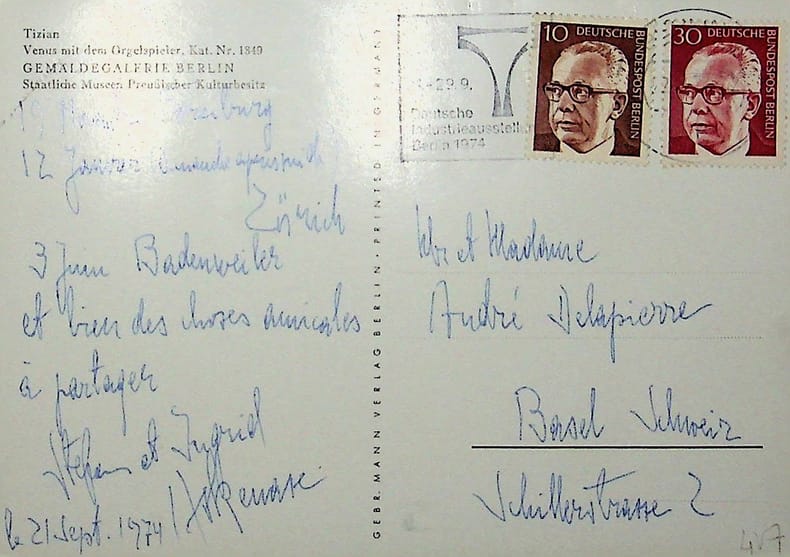 Tizian
Venus mit dem Orgelspieler, Kat. Nr. 1849
GEMÄLDEGALERIE BERLIN
Staatliche Museen Preußischer Kulturbesitz
19
12 Janvier
Zürich
3 Juin Badenweiler
et bien des choses amicales
à partager
Stefan et Ingrid
le 21 Sept. 1974
GEBR. MANN VERLAG BERLIN · PRINTED IN GERMANY
-29.9.
Deutsche
Industrieausstellu
Berlin 1974
10 DEUTSCHE BUNDESPOST BERLIN
30 DEUTSCHE BUNDESPOST BERLIN
et Madame
André Delapierre
Basel Schweiz
Schillerstrasse 2